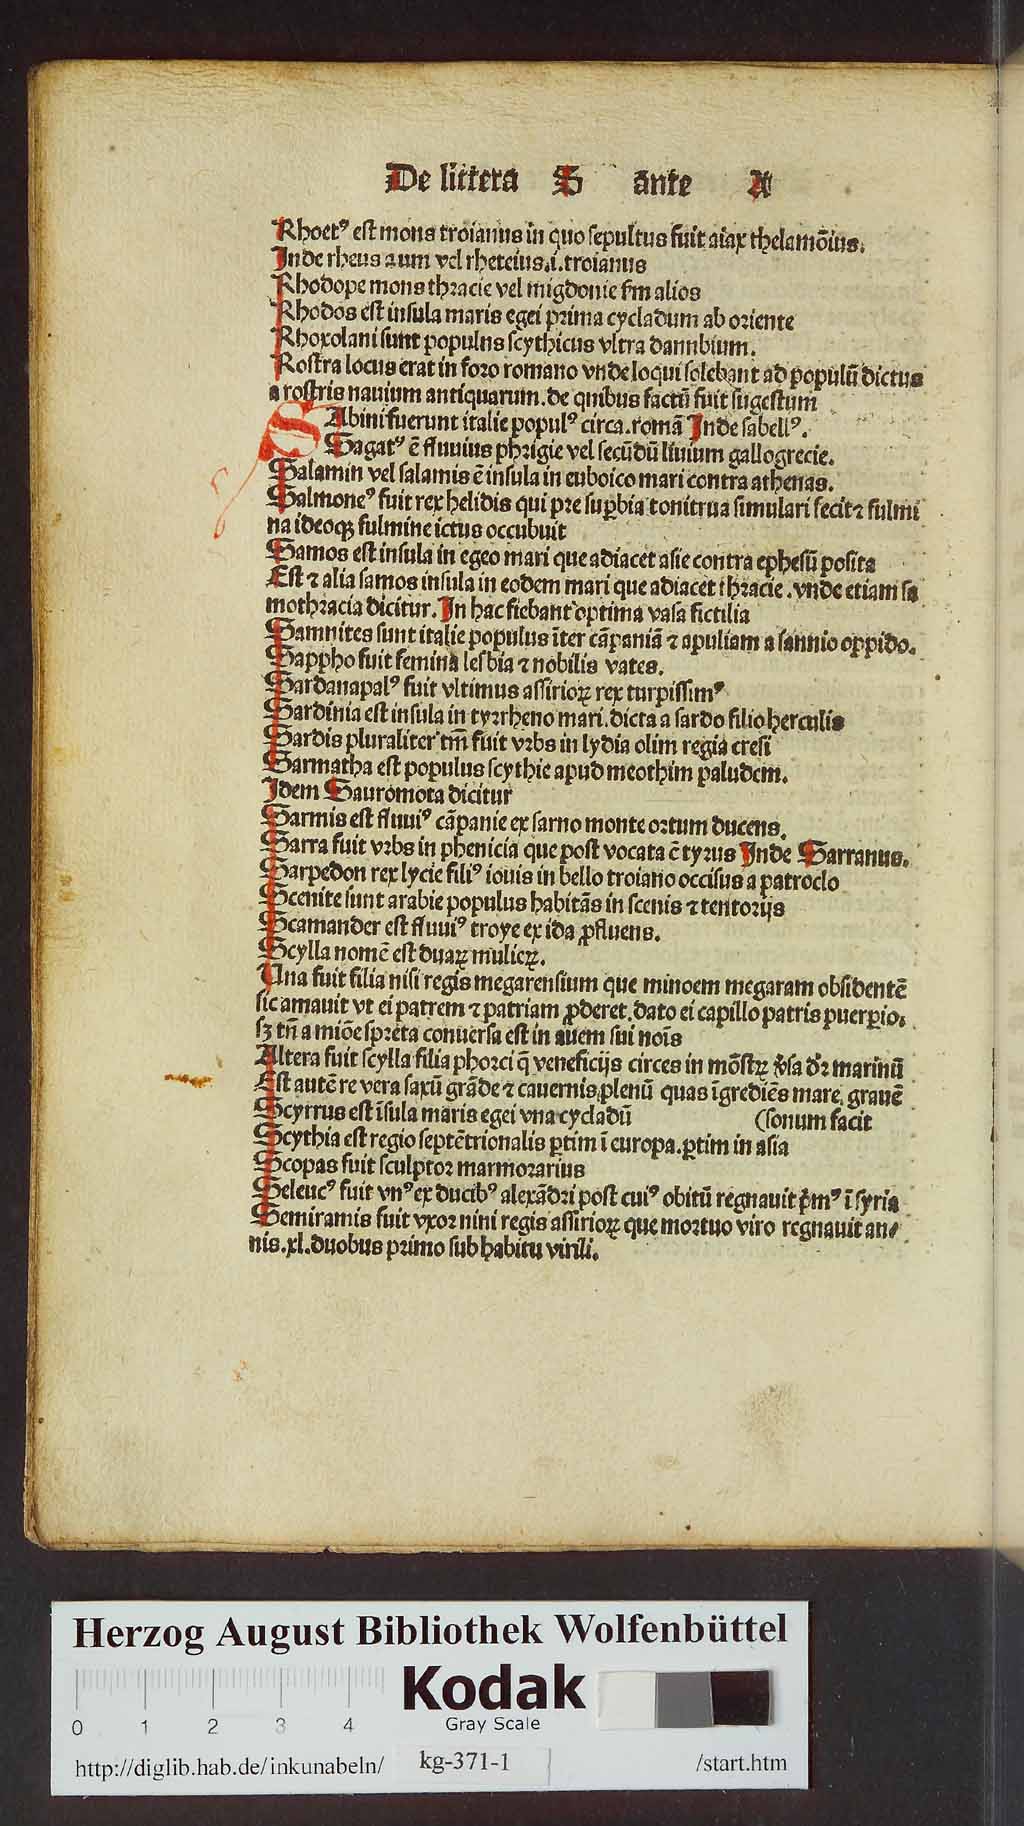 De littera S ante A
Rhoetꝰ est mons troianus in quo sepultus fuit aiax thelamōius.
Inde rheus a um vel rheteius.i.troianus
Rhodope mons thracie vel migdonie fm alios
Rhodos est insula maris egei prima cycladum ab oriente
Rhoxolani sunt populus scythicus vltra dannbium.
Rostra locus erat in foro romano vnde loqui solebant ad populū dictus
a rostris nauium antiquarum.de quibus factū fuit sugestum
SAbini fuerunt italie populꝰ circa.romā Inde sabellꝰ.
Sagatꝰ ē fluuius phrigie vel secūdū liuium gallogrecie.
Salamin vel salamis ē insula in euboico mari contra athenas.
Salmoneꝰ fuit rex helidis qui pre suꝑbia tonitrua simulari fecit ⁊ fulmi
na ideoqꝫ fulmine ictus occubuit
Samos est insula in egeo mari que adiacet asie contra ephesū posita
Est ⁊ alia samos insula in eodem mari que adiacet thracie.vnde etiam sa
mothracia dicitur. In hac fiebant optima vasa fictilia
Samnites sunt italie populus īter cāpaniā ⁊ apuliam a sannio oppido.
Sappho fuit femina lesbia ⁊ nobilis vates.
Sardanapalꝰ fuit vltimus assirioꝝ rex turpissimꝰ
Sardinia est insula in tyrrheno mari.dicta a sardo filio herculis
Sardis pluraliter tm̄ fuit vrbs in lydia olim regia cresi
Sarmatha est populus scythie apud meothim paludem.
Idem Sauromota dicitur
Sarmis est fluuiꝰ cāpanie ex sarno monte ortum ducens.
Sarra fuit vrbs in phenicia que post vocata ē tyrus Inde Sarranus.
Sarpedon rex lycie filiꝰ iouis in bello troiano occisus a patroclo
Scenite sunt arabie populus habitās in scenis ⁊ tentorijs
Scamander est fluuiꝰ troye ex ida ꝓfluens.
Scylla nomē est duaꝝ mulieꝝ.
Una fuit filia nisi regis megarensium que minoem megaram obsidentē
sic amauit vt ei patrem ⁊ patriam ꝓderet.dato ei capillo patris puerꝑio.
sꝫ tn̄ a miōe spreta conuersa est in auem sui nōis
Altera fuit scylla filia phorci q̄ veneficijs circes in mōstꝝ v̓sa dr̄ marinū
Est autē re vera saxū grāde ⁊ cauernis plenū quas īgrediēs mare. grauē
Scyrrus est īsula maris egei vna cycladū (sonum facit
Scythia est regio septētrionalis ꝑtim ī europa.ꝑtim in asia
Scopas fuit sculptor marmorarius
Seleucꝰ fuit vnꝰ ex ducibꝰ alexādri post cuiꝰ obitū regnauit pͥmꝰ ī syria
Semiramis fuit vxor nini regis assirioꝝ que mortuo viro regnauit an⸗
nis.xl.duobus primo sub habitu virili.
Herzog August Bibliothek Wolfenbüttel
Kodak
Gray Scale
0 1 2 3 4
http://diglib.hab.de/inkunabeln/ kg-371-1 /start.htm